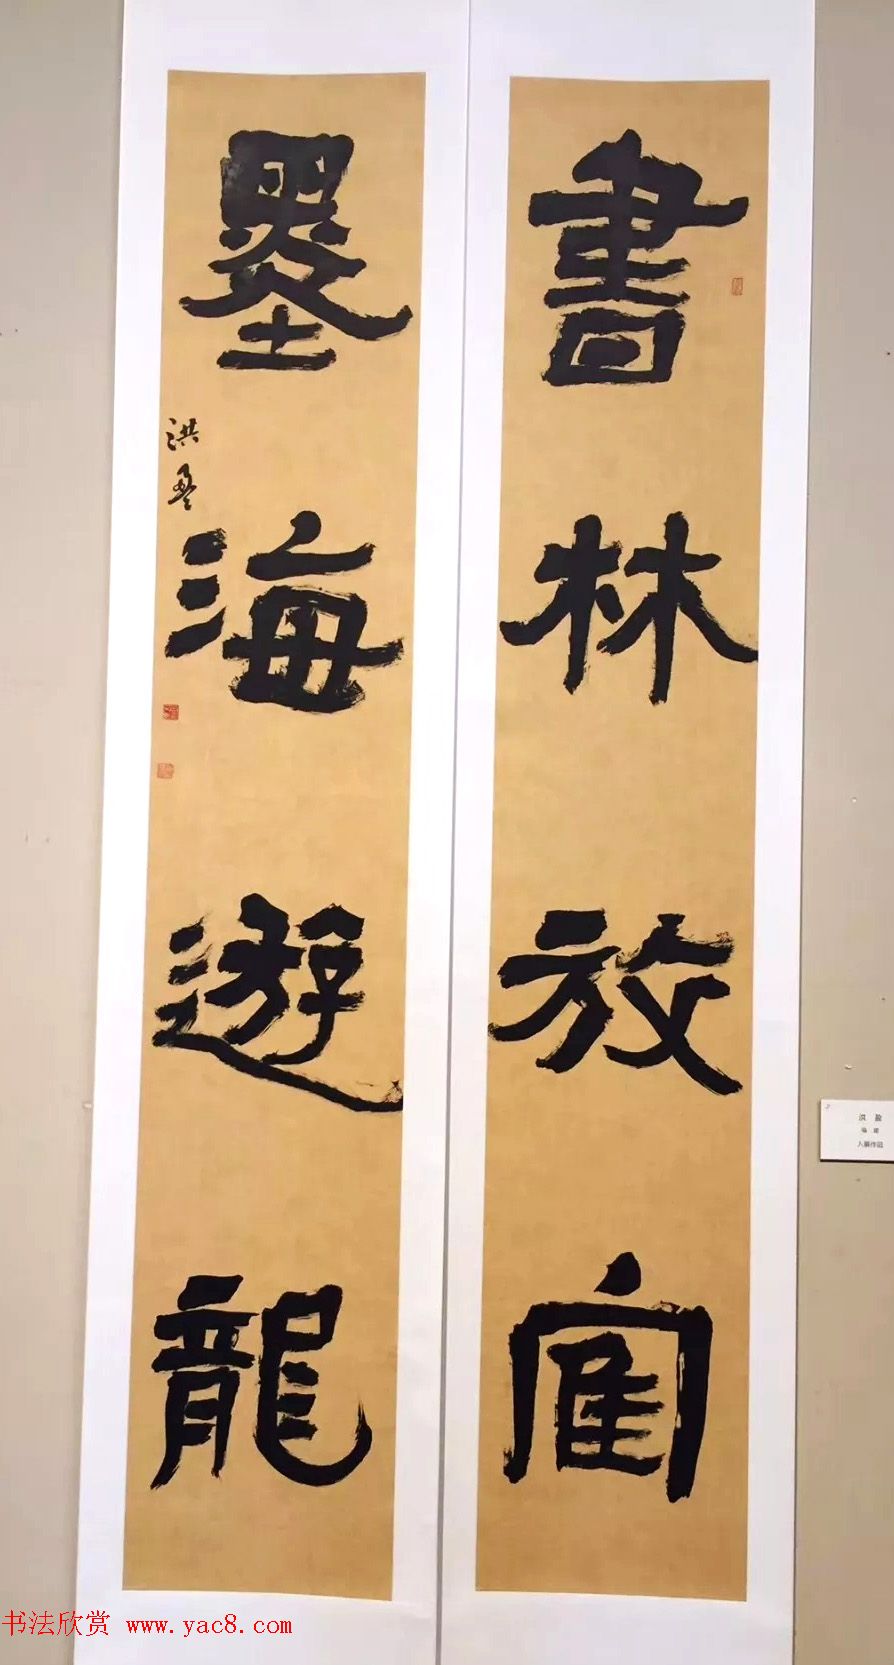 書林放寉
墨海遊龍
洪盈
洪 盈
福 建
入展作品
书法欣赏 www.yac8.com